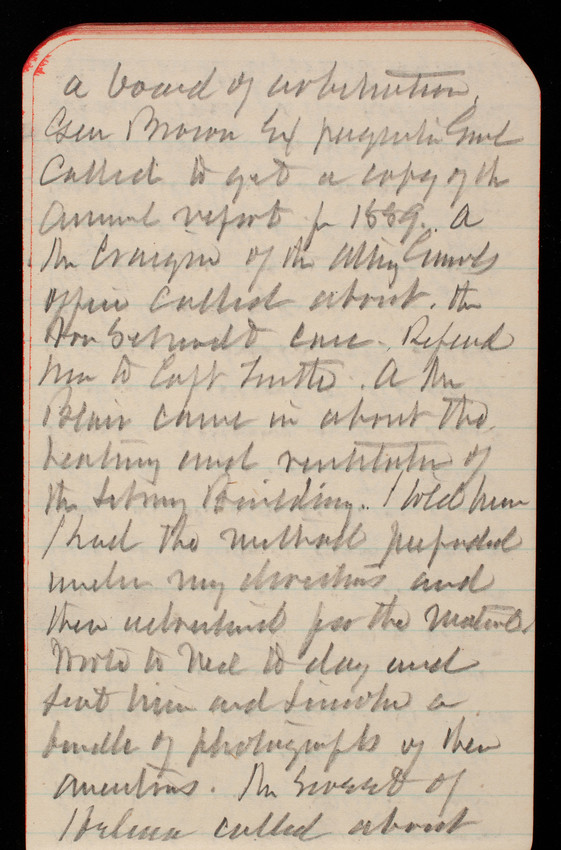 a board of arbitration.
Gen Brown Ex
called to get a copy of the
annual report for 1889. A
Mr Craigin of the Atty Genls
office called about the
case. Referd
him to Capt Tuttle. A Mr
Blair came in about the
heating and ventilation of
the Library Building. I told him
I had the method prepared
under my directions and
then advertised for the materials
Wrote to Ned to day and
sent him and Lincoln a
bundle of photographs of their
ancestors. Mr of
Helena called about